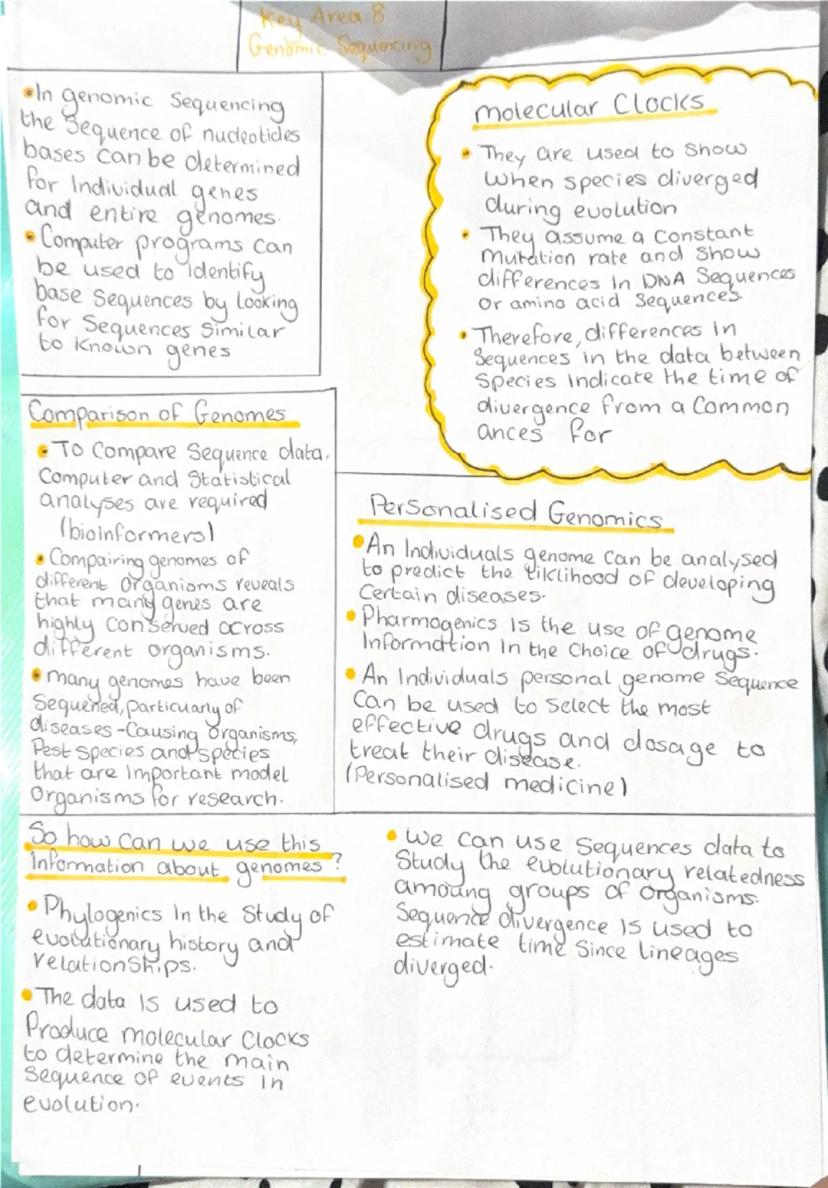 Key Area 8
Genomic Sequencing
•In genomic Sequencing
the Sequence of nucleotides
bases can be determined
for Individual genes
and entire genomes.
•Computer programs can
be used to identify
base sequences by looking
for Sequences Similar
to known genes
Molecular Clocks
• They are used to show
when species diverged
during evolution
• They assume a constant
mutation rate and show
differences in DNA Sequences
or amino acid sequences.
• Therefore, differences in
sequences in the data between
species indicate the time of
divergence from a common
ances for
Comparison of Genomes
• To compare sequence data,
Computer and Statistical
analyses are required
(bioinformers)
• Compairing genomes of
different organisms reveals
that many genes are
highly conserved across
different organisms.
• many genomes have been
Sequened, particuarly of
diseases-causing organisms,
Pest species and species
that are important model
Organisms for research.
Personalised Genomics
•An Individuals genome can be analysed
to predict the liklihood of developing
certain diseases.
• Pharmogenics is the use of genome
Information in the choice of drugs.
• An Individuals personal genome sequence
can be used to select the most
effective drugs and dosage to
treat their disease.
(Personalised medicine)
So how can we use this
information about genomes?
• Phylogenics in the study of
evolutionary history and
relationships.
• The data is used to
Produce molecular clocks
to determine the main
sequence of events in
evolution.
• We can use sequences data to
study the evolutionary relatedness
amoung groups of organisms.
Sequence divergence is used to
estimate time since lineages
diverged.